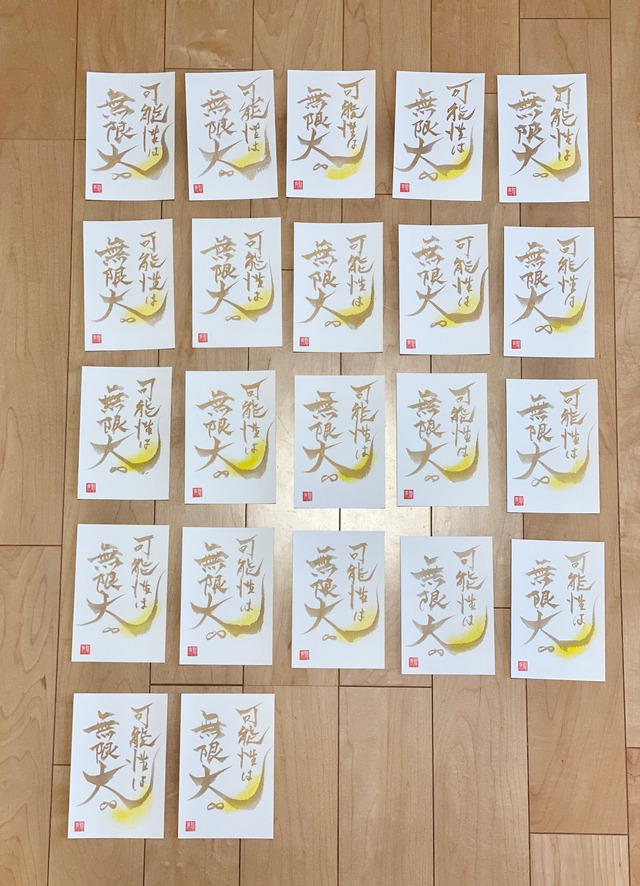 可能性は
無限大∞
可能性は
無限大∞
可能性は
無限大∞
可能性は
無限大∞
可能性は
無限大∞
可能性は
無限大∞
可能性は
無限大∞
可能性は
無限大∞
可能性は
無限大∞
可能性は
無限大∞
可能性は
無限大∞
可能性は
無限大∞
可能性は
無限大∞
可能性は
無限大∞
可能性は
無限大∞
可能性は
無限大∞
可能性は
無限大∞
可能性は
無限大∞
可能性は
無限大∞
可能性は
無限大∞
可能性は
無限大∞
可能性は
無限大∞